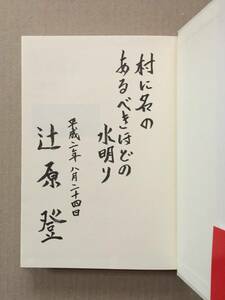 村に名の
あるべきほどの
水明り
平成二年八月二十四日
辻原登